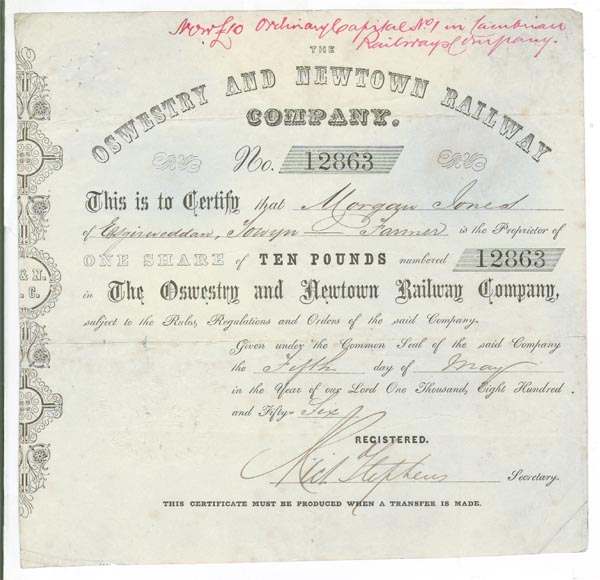 Now £10 Ordinary Capital No 1 in Cambrian
Railways Company.
THE
OSWESTRY AND NEWTOWN RAILWAY
COMPANY.
No. 12863
This is to Certify that Morgan Jones
of Towyn Farmer is the Proprietor of
ONE SHARE of TEN POUNDS numbered 12863
in The Oswestry and Newtown Railway Company,
subject to the Rules, Regulations and Orders of the said Company.
Given under the Common Seal of the said Company
the Fifth day of May
in the Year of our Lord One Thousand, Eight Hundred
and Fifty- Six
REGISTERED.
Stephens Secretary.
THIS CERTIFICATE MUST BE PRODUCED WHEN A TRANSFER IS MADE.
& N.
. C.